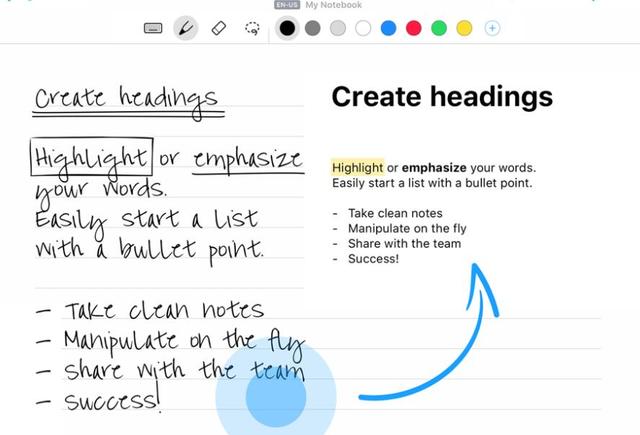 EN-US My Notebook
Create headings
Highlight or emphasize
your words.
Easily start a list
with a bullet point.
- Take clean notes
- Manipulate on the fly
- share with the team
- success!
Create headings
Highlight or emphasize your words.
Easily start a list with a bullet point.
- Take clean notes
- Manipulate on the fly
- Share with the team
- Success!